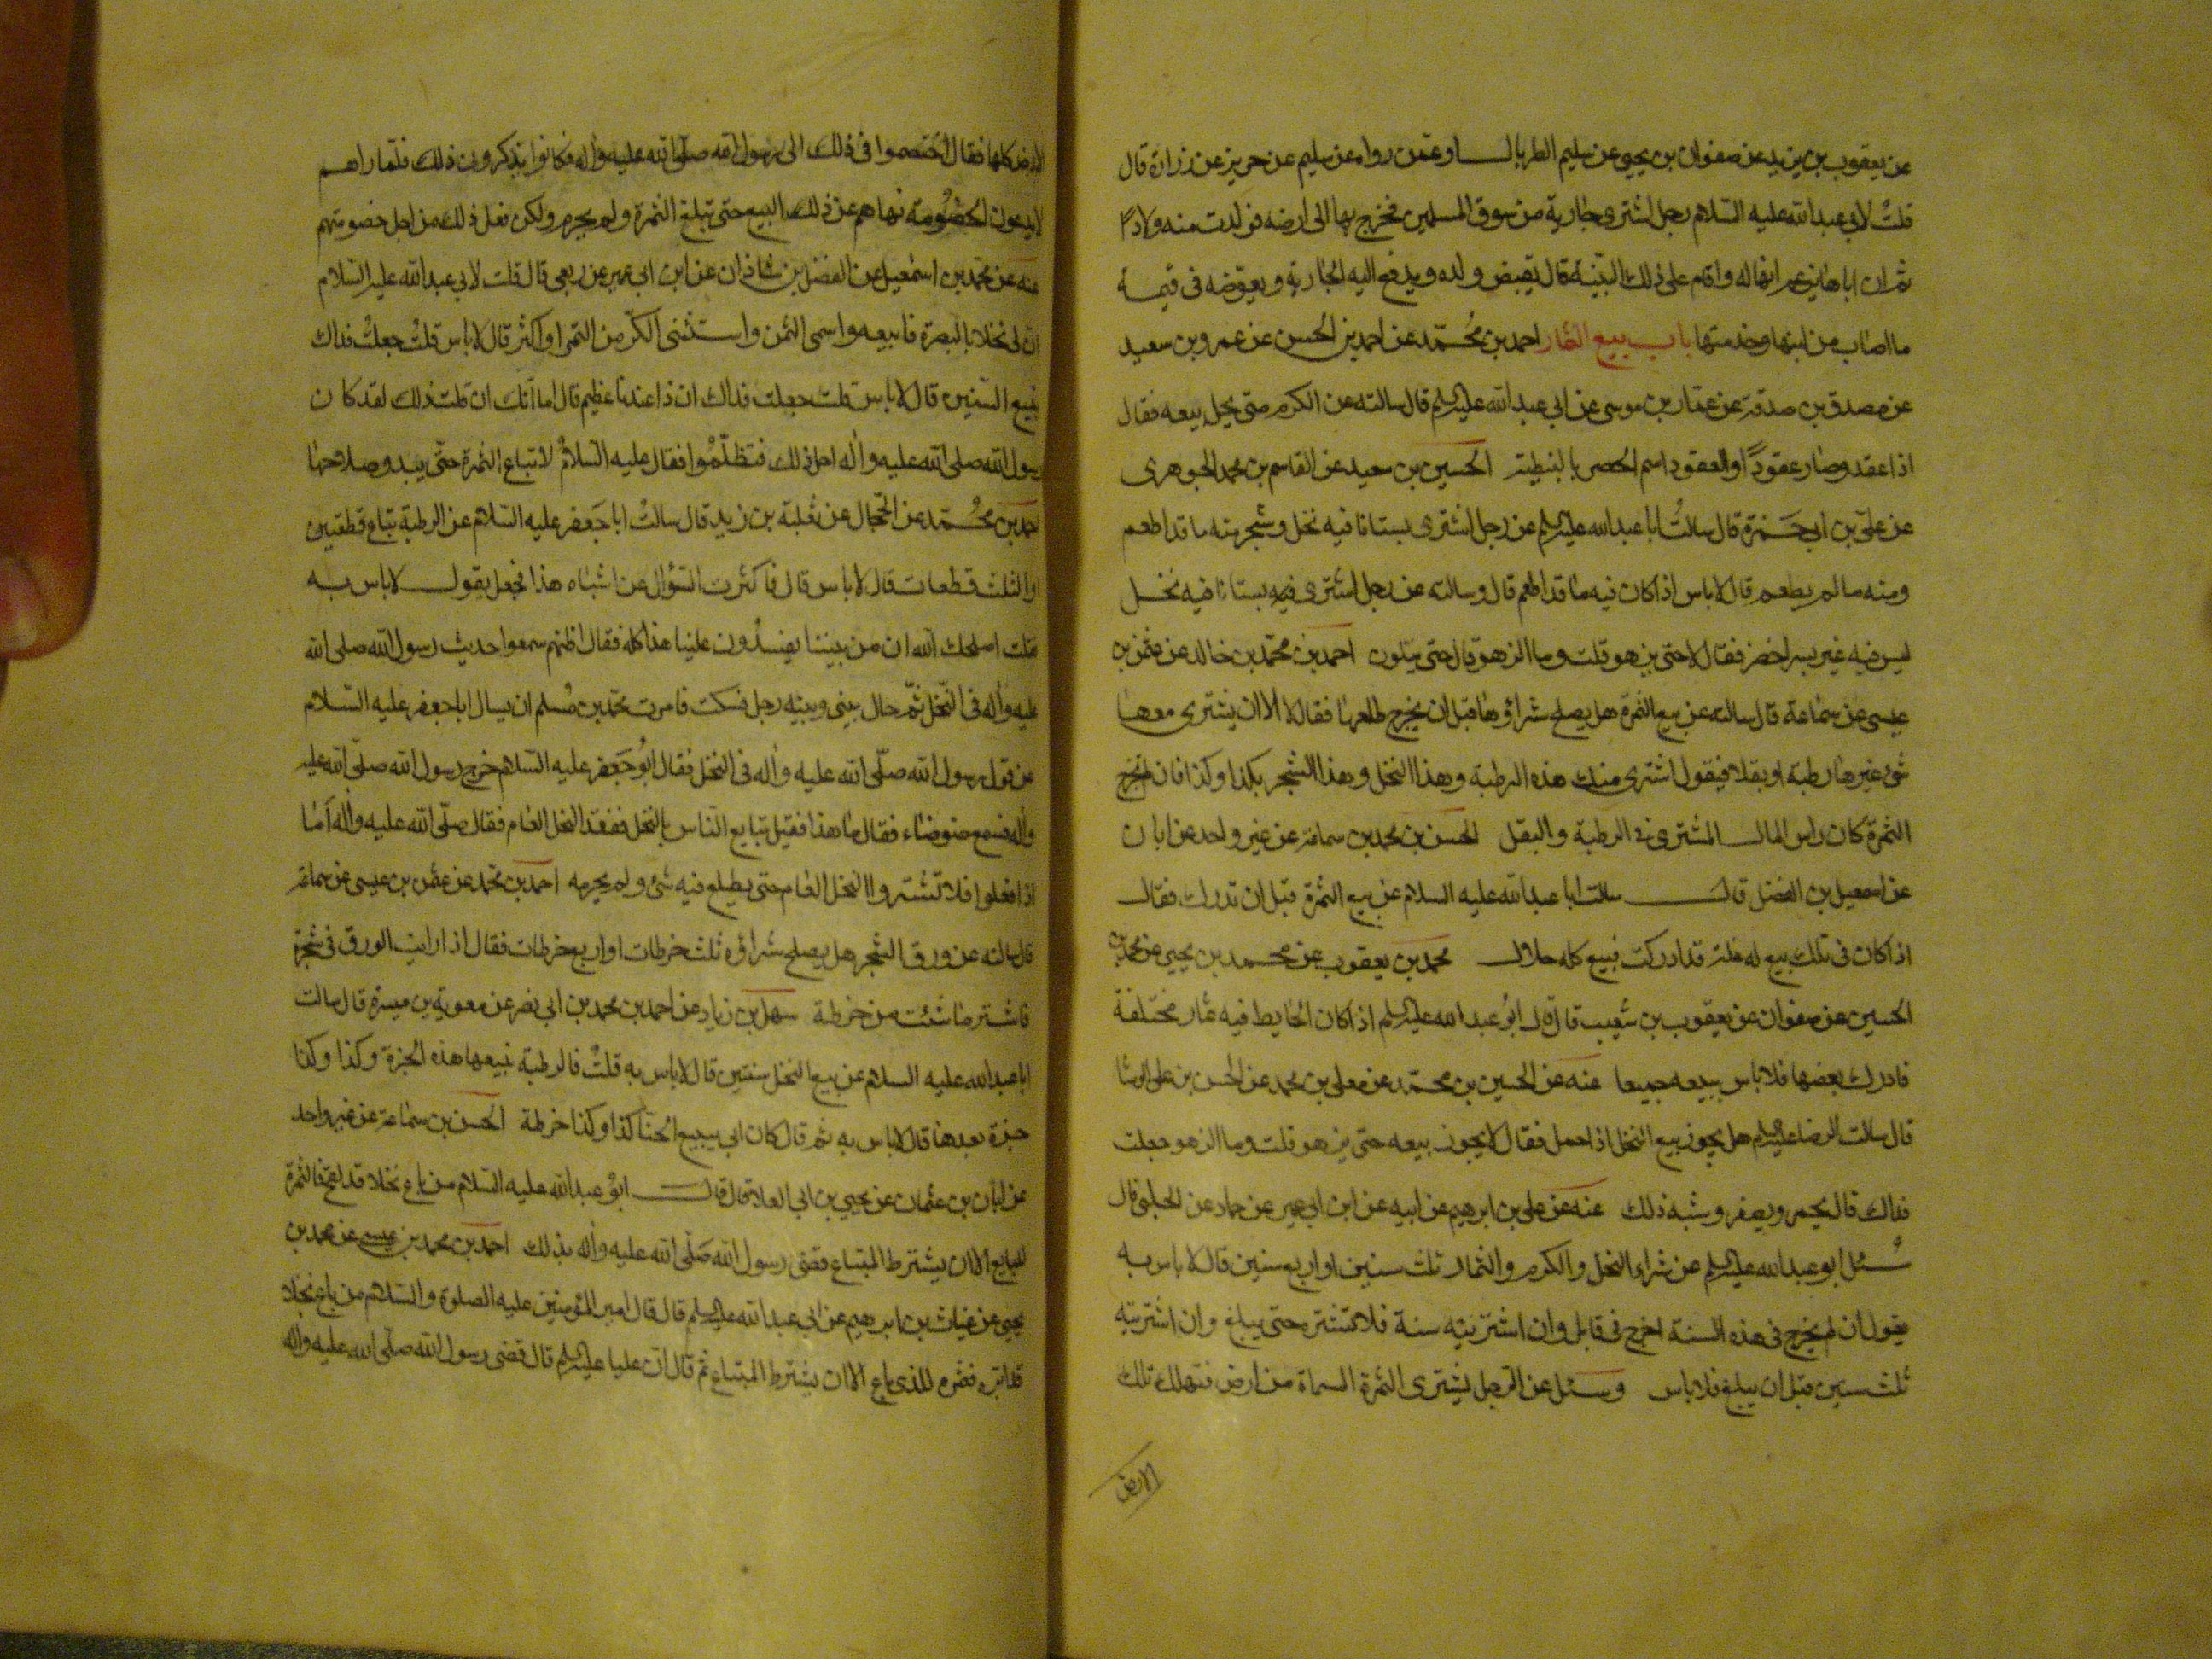 عن يعقوب بن يزيد عن صفوان بن يحيى عن سليم الطربال او عمن رواه عن سليم عن حريز عن زرارة قال
قلت لابي عبد الله عليه السلام رجل اشترى جارية من سوق المسلمين فخرج بها الى ارضه فولدت منه ولادا
ثم ان اباها يزعم انها له واقام على ذلك البينة قال يقبض ولده ويدفع اليه الجارية ويعوضه في قيمة
ما اصاب من لبنها وخدمتها باب بيع الثمار احمد بن محمد عن احمد بن الحسن عن عمرو بن سعيد
عن مصدق بن صدقة عن عمار بن موسى عن ابي عبد الله عليه السلم قال سالته عن الكرم متى يحل بيعه فقال
اذا عقد وصار عقودا والعقود اسم الحصرم بالنبطية الحسين بن سعيد عن القاسم بن محمد الجوهرى
عن علي بن ابي حمزة قال سالت ابا عبد الله عليه السلم عن رجل اشترى بستانا فيه نخل وشجر منه ما قد اطعم
ومنه ما لم يطعم قال لا باس اذا كان فيه ما قد اطعم قال وسالته عن رجل اشترى فيه بستانا فيه نخل
ليس فيه غير بسر اخضر فقال لا حتى يزهو قلت وما الزهو قال حتى يتلون احمد بن محمد بن خالد عن عثمن بن
عيسى عن سماعة قال سالته عن بيع الثمرة هل يصلح شراؤها قبل ان يخرج طلعها فقال لا الا ان يشترى معها
شئ غيرها رطبة او بقلا فيقول اشترى منك هذه الرطبة وهذا النخل وهذا الشجر بكذا وكذا فان لم تخرج
الثمرة كان راس المال المشترى في الرطبة والبقل الحسن بن محمد بن سماعة عن غير واحد عن ابان
عن اسمعيل بن الفضل قال سالت ابا عبد الله عليه السلام عن بيع الثمرة قبل ان تدرك فقال
اذا كان في تلك بيع له غلة قد ادركت فبيع كله حلال محمد بن يعقوب عن محمد بن يحيى عن محمد بن
الحسين عن صفوان عن يعقوب بن شعيب قال قال ابو عبد الله عليه السلم اذا كان الحايط فيه ثمار مختلفة
فادرك بعضها فلا باس ببيعه جميعا عنه عن الحسين بن محمد عن معلى بن محمد عن الحسن بن على الوشا
قال سالت الرضا عليه السلم هل يجوز بيع النخل اذا حمل فقال لا يجوز بيعه حتى يزهو قلت وما الزهو جعلت
فداك قال يحمر ويصفر وشبه ذلك عنه عن علي بن ابرهيم عن ابيه عن ابن ابي عمير عن حماد عن الحلبي قال
سئل ابو عبد الله عليه السلم عن شراء النخل والكرم والثمار ثلث سنين او اربع سنين قال لا باس به
يقول ان لم يخرج في هذه السنة اخرج في قابل وان اشتريته سنة فلا تشتره حتى يبلغ وان اشتريته
ثلث سنين قبل ان يبلغ فلا باس وسئل عن الرجل يشترى الثمرة المسماة من ارض فتهلك تلك
الارض
الارض كلها فقال اختصموا في ذلك الى رسول الله صلى الله عليه واله فكانوا يذكرون ذلك فلما راهم
لا يدعون الخصومة نهاهم عن ذلك البيع حتى تبلغ الثمرة ولم يحرم ولكن فعل ذلك من اجل خصومتهم
عنه عن محمد بن اسمعيل عن الفضل بن شاذان عن ابن ابي عمير عن ربعي قال قلت لابي عبد الله عليه السلام
ان لى نخلا بالبصرة فابيعه واسمى الثمن واستثنى الكر من التمر او اكثر قال لا باس قلت جعلت فداك
نبيع السنتين قال لا باس قلت جعلت فداك ان ذا عندنا عظيم قال اما انك ان قلت ذلك لقد كان
رسول الله صلى الله عليه واله احل ذلك فتظلموا فقال عليه السلام لا تباع الثمرة حتى يبدو صلاحها
احمد بن محمد عن الحجال عن ثعلبة بن زيد قال سالت ابا جعفر عليه السلام عن الرطبة تباع قطعتين
او الثلث قطعات قال لا باس قال فاكثرت السؤال عن اشباه هذا فجعل يقول لا باس به
قلت اصلحك الله ان من بيننا يفسدون علينا هذا كله فقال اظنهم سمعوا حديث رسول الله صلى الله
عليه واله في النخل ثم حال بينى وبينه رجل فسكت فامرت محمد بن مسلم ان يسال ابا جعفر عليه السلام
عن قول رسول الله صلى الله عليه واله في النخل فقال ابو جعفر عليه السلام خرج رسول الله صلى الله عليه
واله فسمع ضوضاء فقال ما هذا فقيل تبايع الناس بالنخل ففقد النخل العام فقال صلى الله عليه واله اما
اذا فعلوا فلا تشتروا النخل العام حتى يطلع فيه شئ ولم يحرمه احمد بن محمد عن عثمن بن عيسى عن سماعة
قال سالته عن ورق الشجر هل يصلح شراؤه ثلث خرطات او اربع خرطات فقال اذا رايت الورق في شجرة
فاشتر ما شئت من خرطة سهل بن زياد عن احمد بن محمد بن ابي نصر عن معوية بن ميسرة قال سالت
ابا عبد الله عليه السلام عن بيع النخل سنتين قال لا باس به قلت فالرطبة نبيعها هذه الجزة وكذا وكذا
جزة بعدها قال لا باس به ثم قال كان ابي يبيع الحنا كذا وكذا خرطة الحسن بن سماعة عن غير واحد
عن ابان بن عثمان عن يحيى بن ابي العلا قال قال ابو عبد الله عليه السلام من باع نخلا قد لقح فالثمرة
للبايع الا ان يشترط المبتاع قضى رسول الله صلى الله عليه واله بذلك احمد بن محمد بن عيسى عن محمد بن
يحيى عن غياث بن ابرهيم عن ابي عبد الله عليه السلم قال قال امير المؤمنين عليه الصلوة والسلام من باع نخلا
قد ابره فثمره للذى باع الا ان يشترط المبتاع ثم قال ان عليا عليه السلم قال قضى رسول الله صلى الله عليه واله